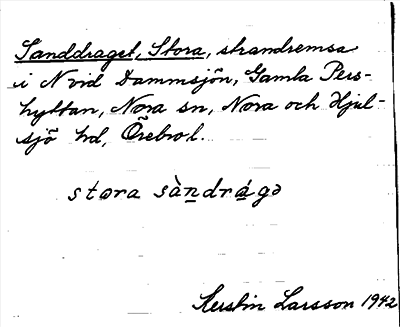 Sanddraget, Stora, strandremsa
i N vid Dammsjön, Gamla Pers-
hyttan, Nora sn, Nora och Hjul-
sjö hd, Örebro l.
stora sàndrágə
Kerstin Larsson 1942